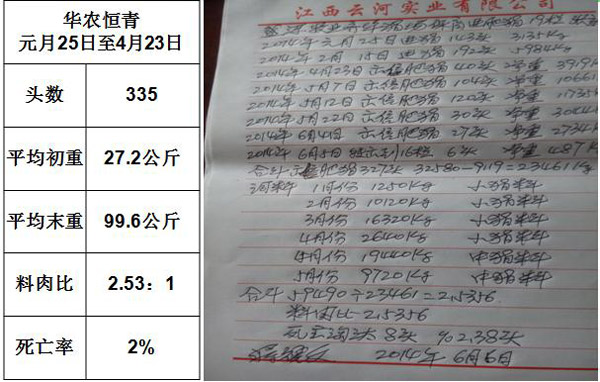 华农恒青
元月25日至4月23日
头数 335
平均初重 27.2公斤
平均末重 99.6公斤
料肉比 2.53：1
死亡率 2%
江西云河实业有限公司
2014年元月25日 143头 3135Kg
2014年2月15日 192头 5984Kg
2014年4月23日 肥猪40头 净重 3919K
2014年5月7日 肥猪104头 净重 10661
2014年5月12日 肥猪120头 净重
2014年5月22日 肥猪30头 净重
2014年6月4日 肥猪27头 净重 2734K
2014年6月5日 6头 净重 487K
合计 肥猪327头 32580-9119=23461Kg
1月份 1250Kg 小猪料
2月份 10120Kg 小猪料
3月份 16320Kg 小猪料
4月份 2640Kg 小猪料
4月份 19440Kg 中猪料
5月份 9720Kg 中猪料
合计 59490÷23461=2.5356
料肉比 2.5356
死亡淘汰 8头 % 2.38头
2014年6月6日